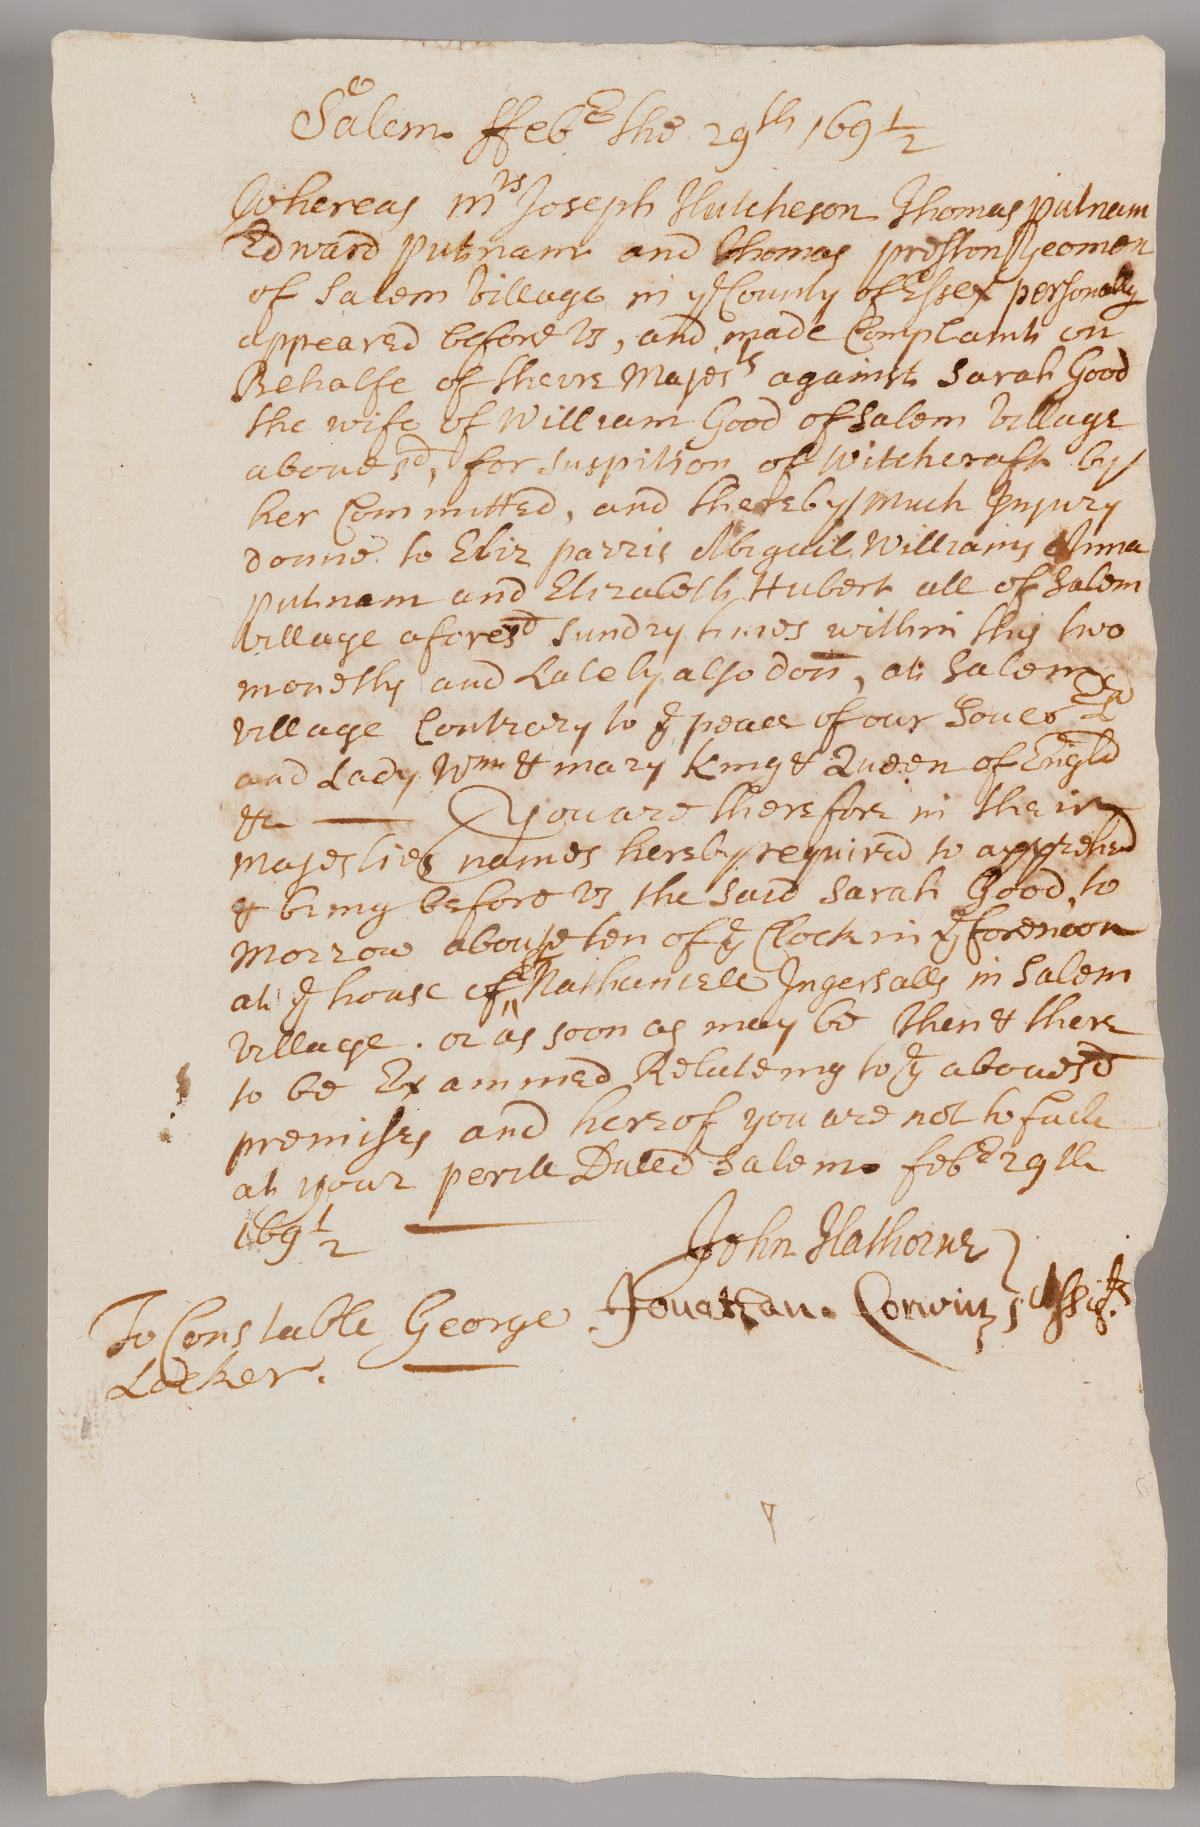 Salem ffeb^e the 29th 169½
Whereas m^rs Joseph Hutcheson Thomas putnam
Edward putnam and Thomas preston Yeomen
of Salem Village in y^e County of Essex personally
appeared before vs, and made Complaint on
Behalfe of theire Majes^ts against Sarah Good
the wife of William Good of Salem Village
aboues^d, for suspition of Witchcraft by
her Committed, and thereby much Injury
donne to Eliz parris Abigail Williams Anna
putnam and Elizabeth Hubert all of Salem
Village afores^d Sundry times within this two
moneths and Lately also don, at Salem
Village Contrary to y^e peace of our Souer^n L^d
and Lady W^m & mary King & Queen of Engl^d
&c — You are therefore in their
Majesties names hereby required to apprehed
& bring before vs the said Sarah Good, to
Morrow aboute ten of y^e Clock in y^e forenoon
at y^e house of L^t Nathaniell Ingersalls in Salem
Village. or as soon as may be then & there
to be Examined Relateing to y^e aboues^d
premises and hereof you are not to faile
at your perile Dated Salem. feb^e 29th
169½
John Hathorne
Jonathan. Corwin } Assis^ts
To Constable George
Locker.